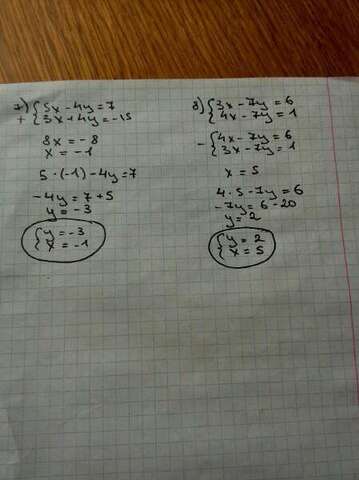 7) { 5x - 4y = 7
+ { 3x + 4y = -15
8x = -8
x = -1
5 · (-1) - 4y = 7
-4y = 7 + 5
y = -3
{ y = -3
{ x = -1
8) { 3x - 7y = 6
{ 4x - 7y = 1
- { 4x - 7y = 6
{ 3x - 7y = 1
x = 5
4 · 5 - 7y = 6
-7y = 6 - 20
y = 2
{ y = 2
{ x = 5